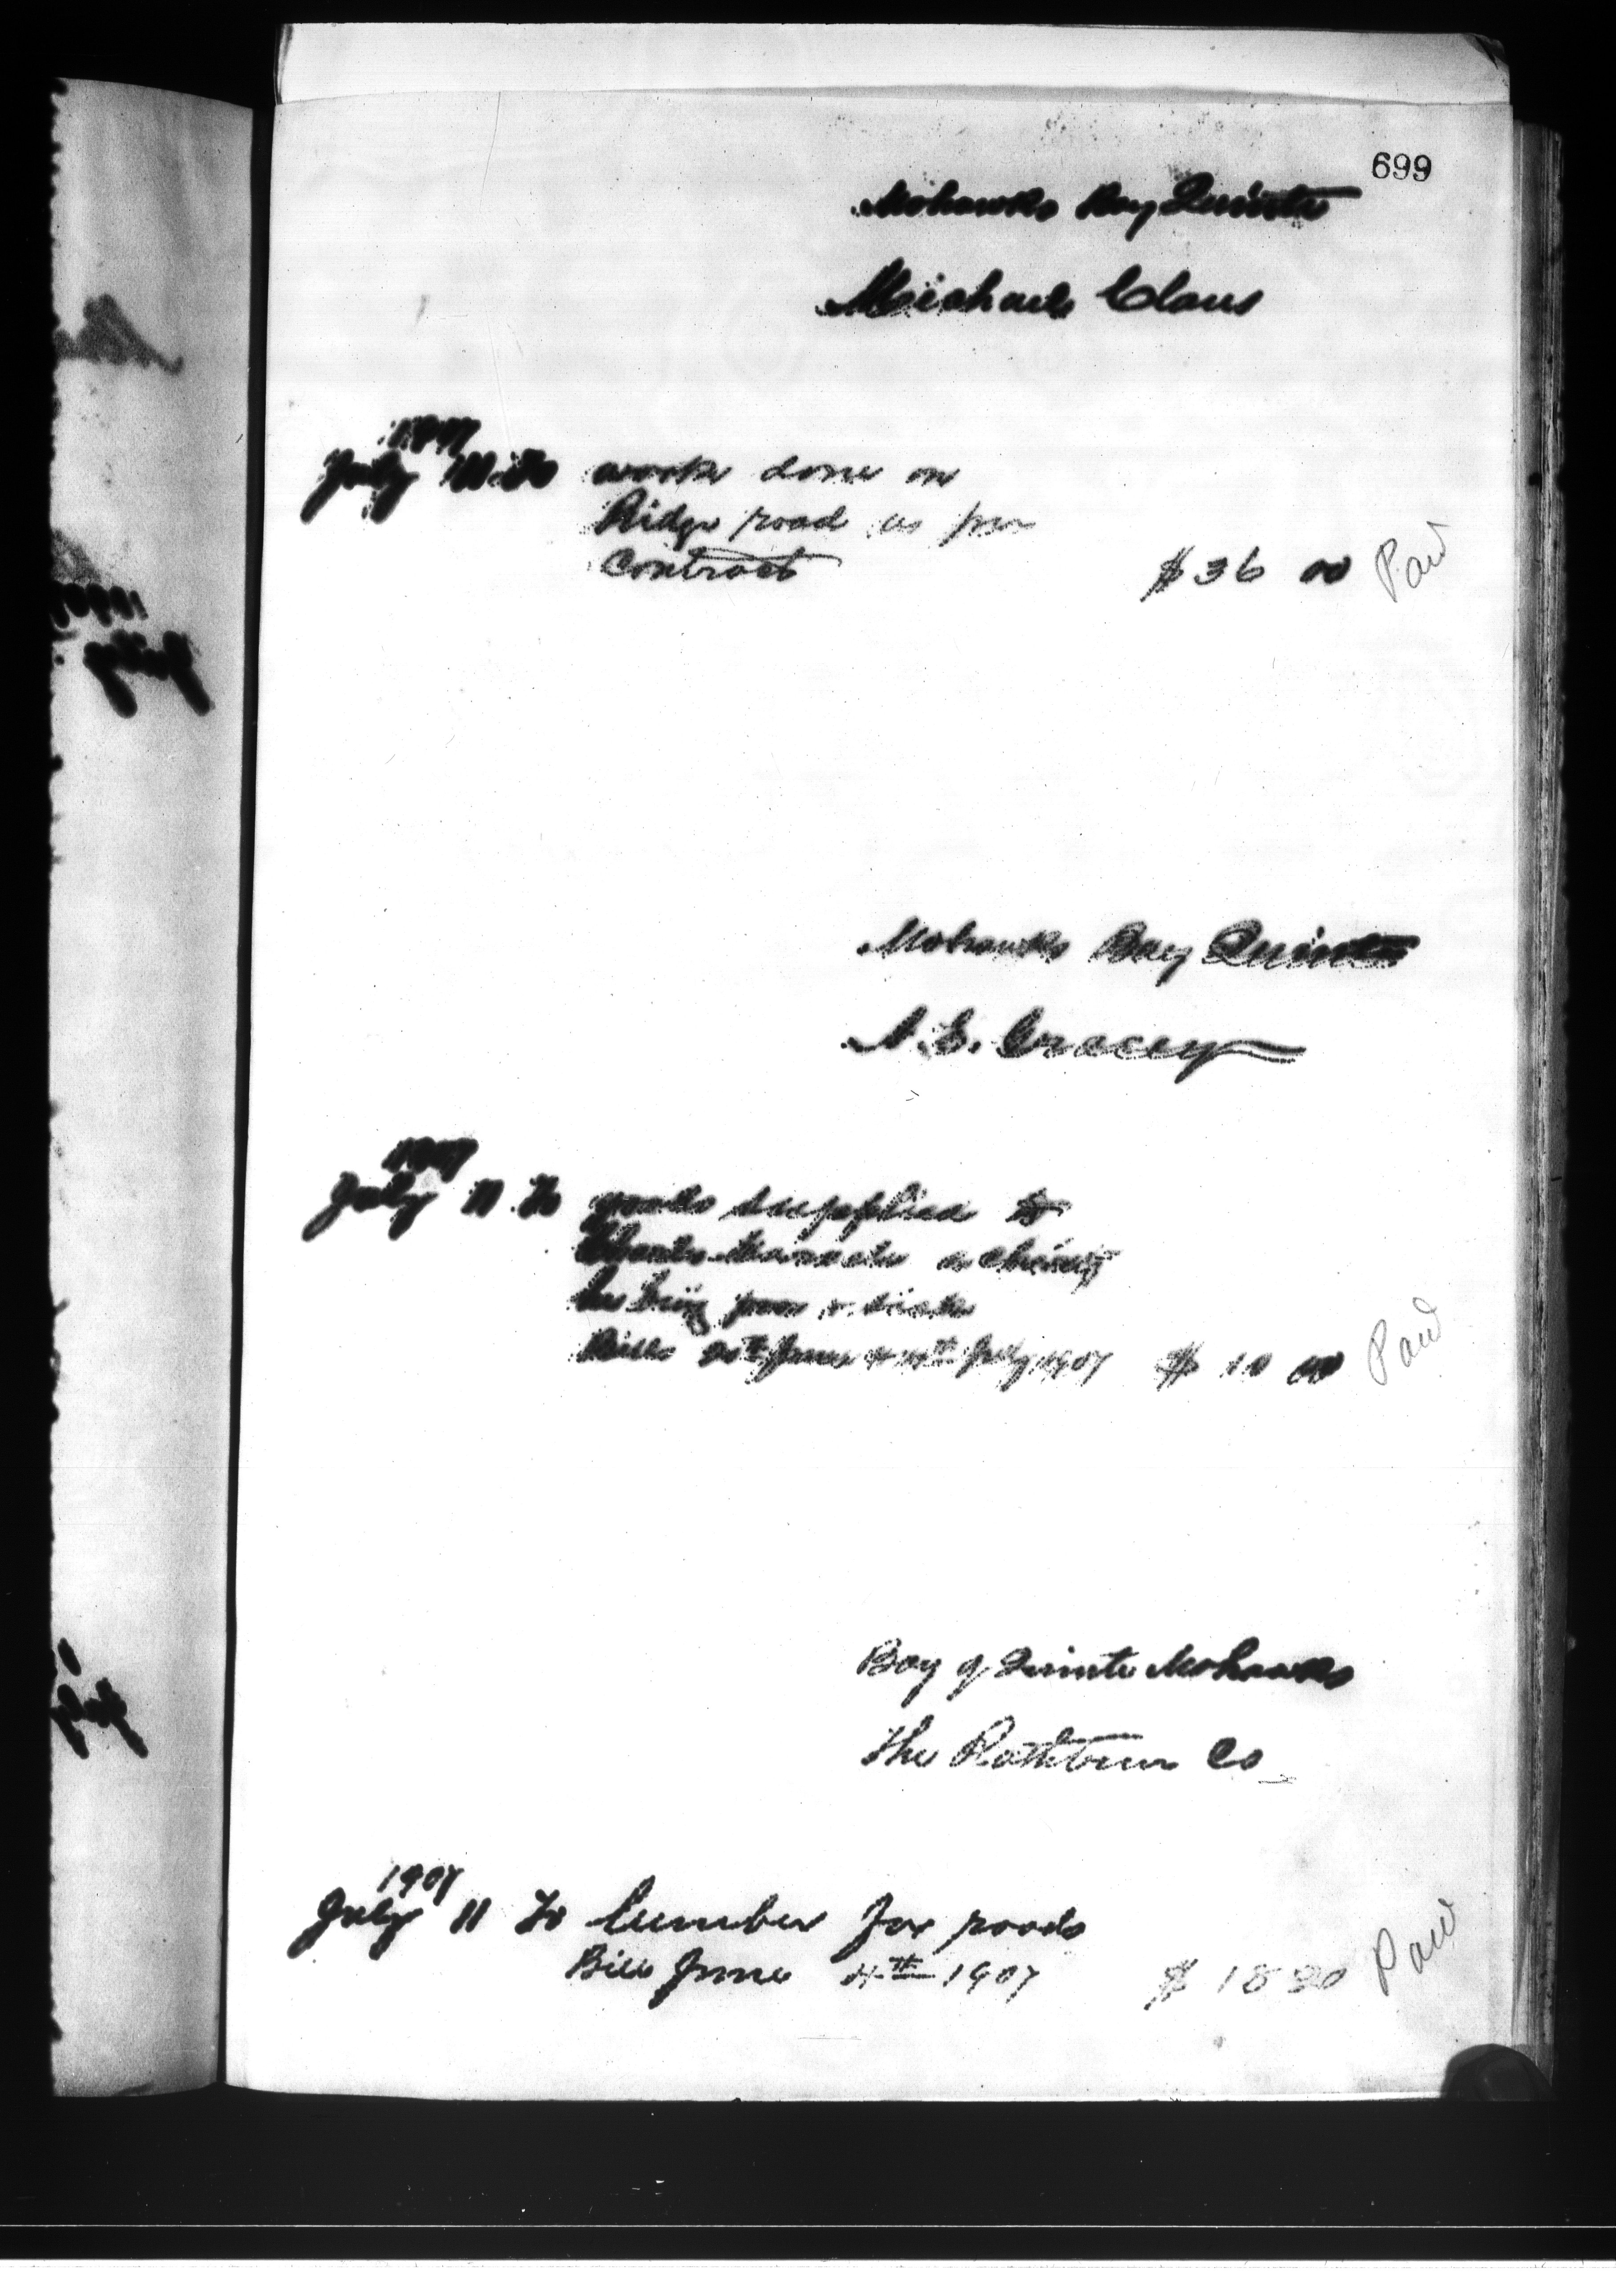 699
Mohawks Bay Quinte
Michael Claus
1907
July 11 To work done on
Ridge road as per
Contract $36 00 Paid
Mohawks Bay Quinte
A. E. Gracey
1907
July 11 To goods supplied to
Charles
he being poor & sick
Bills 20th June & 11th July 1907 $ 10 00 Paid
Bay of Quinte Mohawks
The Rathbun Co
1907
July 11 To lumber for roads
Bill June 4th 1907 $ 18 80 Paid
July
July